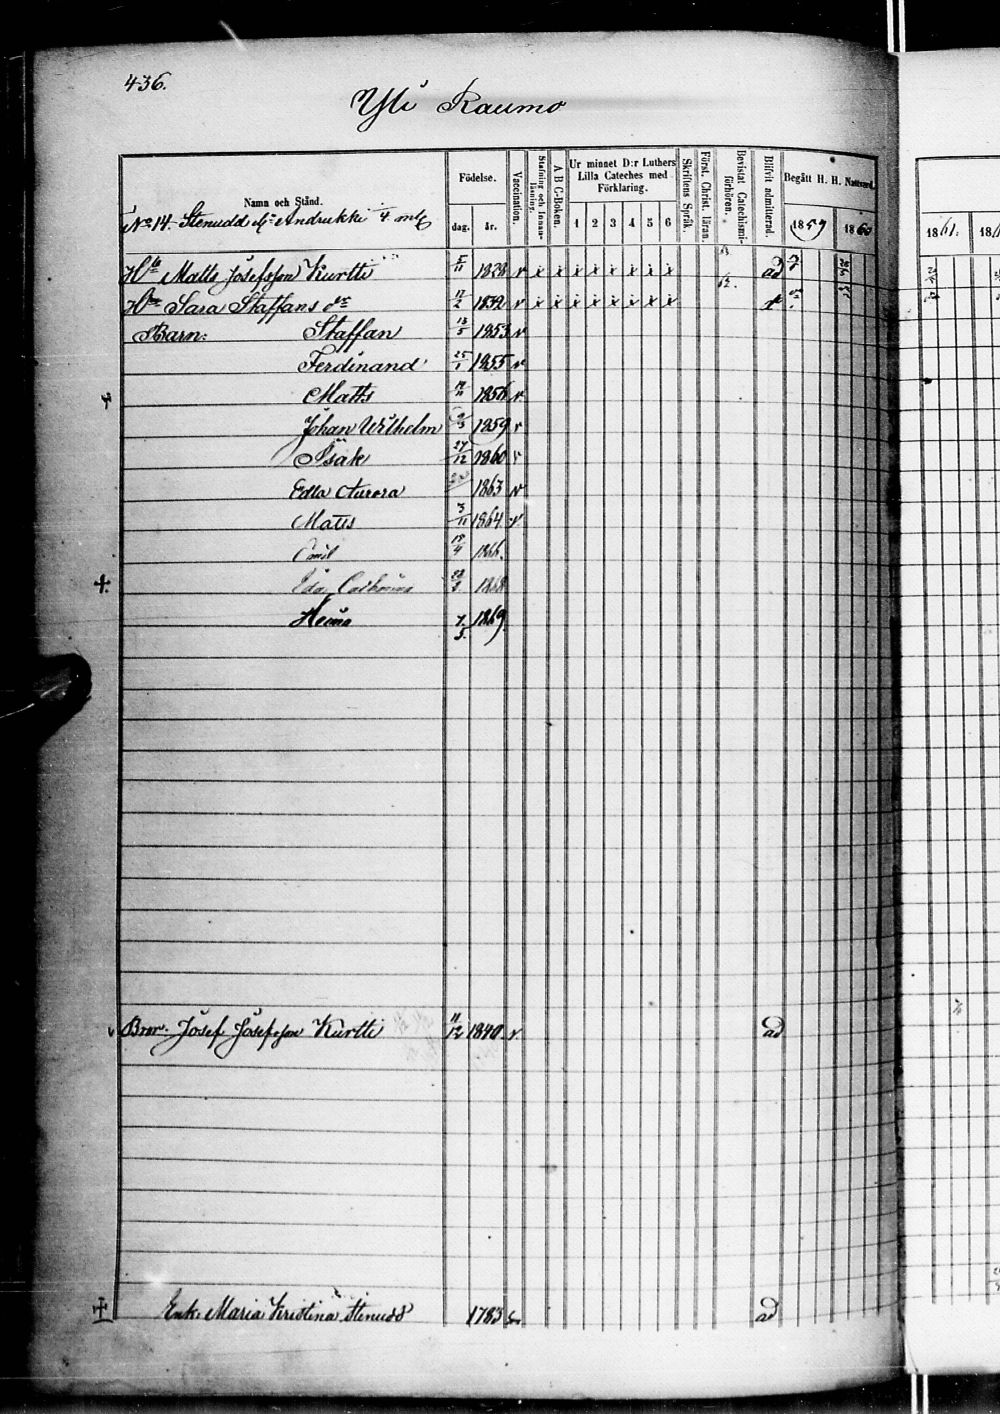 436.
Yli Raumo
Namn och Stånd.
Födelse.
dag. år.
Vaccination.
Stafning och Innanläsning.
A B C-Boken.
Ur minnet D:r Luthers Lilla Cateches med Förklaring.
1 2 3 4 5 6
Skriftens Språk.
Först. Christ. läran.
Bevistat Catechismiförhören.
Blifvit admitterad.
Begått H. H. Nattvard.
1859 1860
1861.
No 14. Stenudd Andrukki 4 mtl
Matts Josefsson Kurtti 5/11 1828 v x x x x x x x x ad
Sara Staffans dr 17/2 1832 v x x x x x x x x
Barn: Staffan 13/5 1853 v
Ferdinand 25/1 1855 v
Matts 1856 v
Johan Wilhelm 1859 v
Isak 27/12 1860 v
Edla Aurora 1863 v
Matts 3/11 1864 v
Emil 18/4 1866.
Ida 1868
Heina 7/5 1869.
Bror. Josef Josefsson Kurtti 11/12 1840. v ad
Enk. Maria Kristina Stenudd 1783 ad